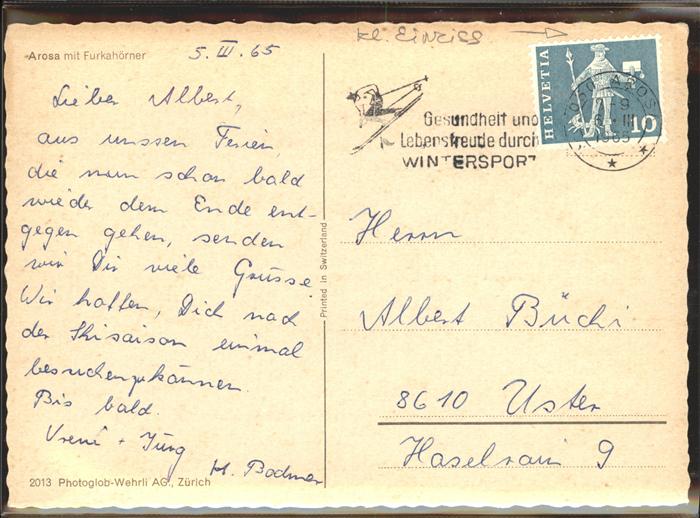 kl. Einriss
Arosa mit Furkahörner
5. III. 65
Lieber Albert,
aus unsren Ferien,
die nun schon bald
wieder dem Ende ent-
gegen gehen, senden
wir Dir viele Grüsse.
Wir hoffen, Dich nach
der Skisaison einmal
besuchen zu können.
Bis bald.
Vreni + Jürg
H. Bodmer
2013 Photoglob-Wehrli AG., Zürich
Printed in Switzerland
Gesundheit und
Lebensfreude durch
WINTERSPORT
HELVETIA
10
AROSA
1965
Herrn
Albert Büchi
8610 Uster
Haselrain 9